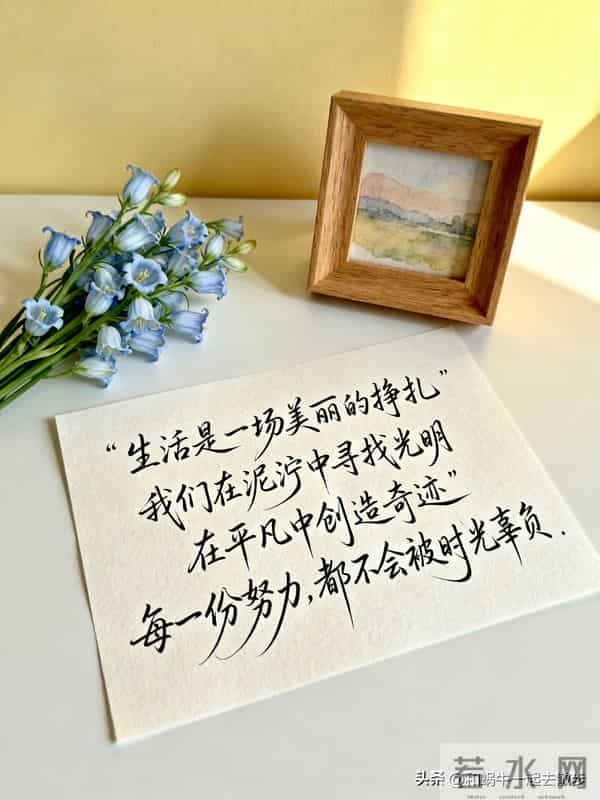 “生活是一场美丽的挣扎”
我们在泥泞中寻找光明
在平凡中创造奇迹”
每一份努力，都不会被时光辜负.
若水网
头条 @和蜗牛一起去散步